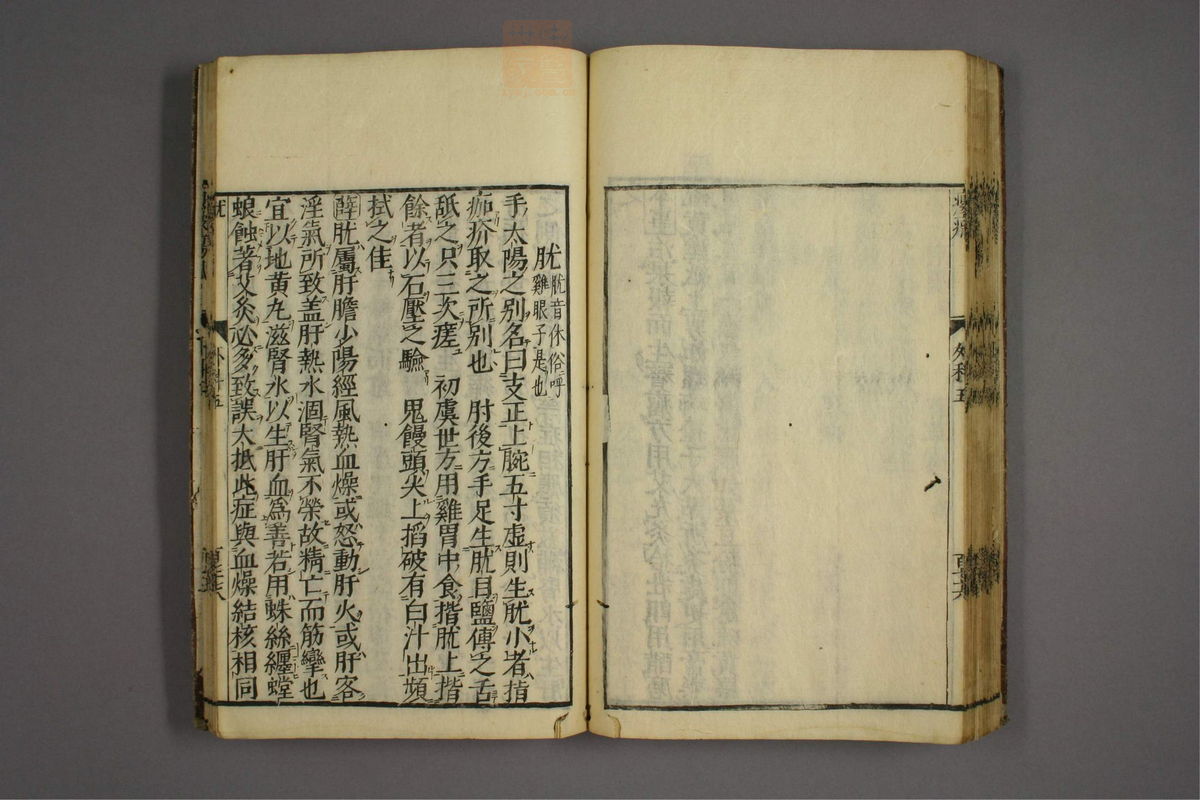 肬肬音休俗呼
雞眼子是也
手太陽之別名曰支正上腕五寸虛則生肬小者指
痂疥取之所別也 肘後方手足生肬目鹽傅之舌
舐之只三次瘥 初虞世方用雞胃中食揩肬上揩
餘者以石壓之驗 鬼饅頭尖上搯破有白汁出頻
拭之佳
薛肬屬肝膽少陽經風熱血燥或怒動肝火或肝客
淫氣所致盖肝熱水涸腎氣不榮故精亡而筋攣也
宜以地黄丸滋腎水以生肝血為善若用蛛絲纏螳
蜋蝕著艾灸必多致誤大抵此症與血燥結核相同
外科五